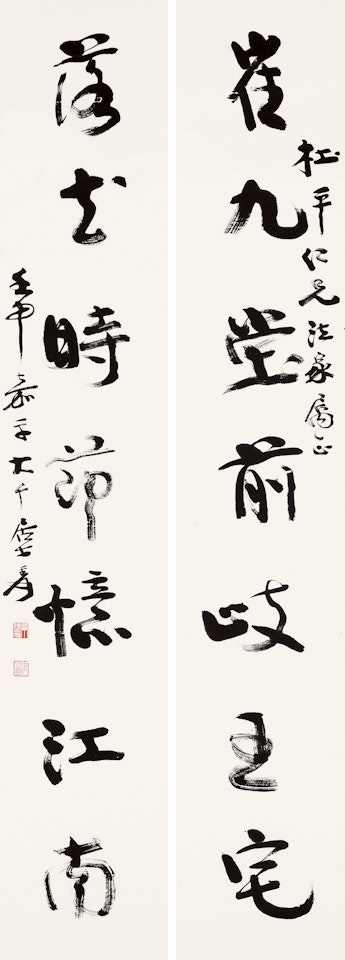 杜平仁兄法家屬正
崔九堂前歧王宅
落花時節憶江南
壬申嘉平大千居士爰